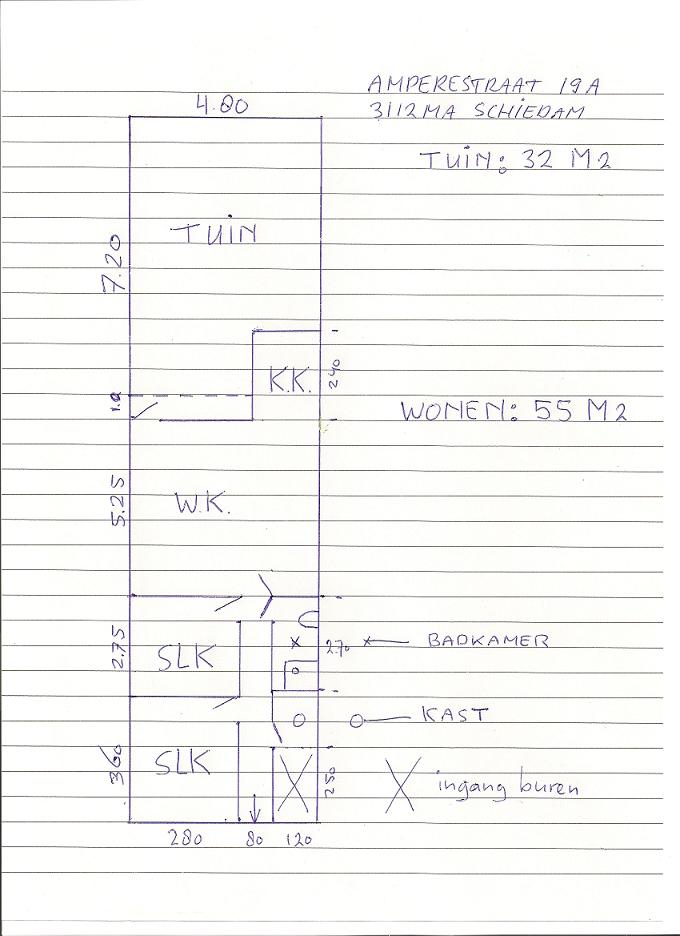 AMPERESTRAAT 19A
3112MA SCHIEDAM
4.80
TUIN: 32 M2
TUIN
7.20
K.K.
240
1.0
WONEN: 55 M2
5.25
W.K.
2.75
SLK
x
2.70
x BADKAMER
O
O KAST
360
SLK
X
250
X ingang buren
280 80 120